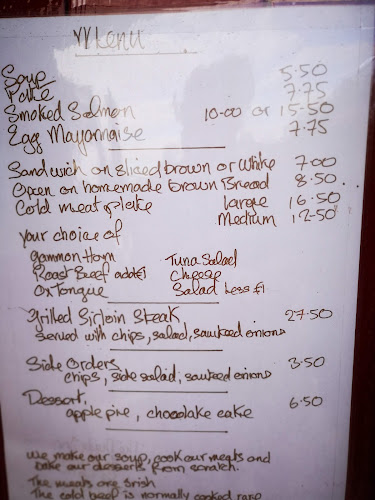 Menu
Soup 5.50
Pate 7.75
Smoked Salmon 10-00 or 15-50
Egg Mayonnaise 7.75
Sandwich on sliced brown or White 7.00
Open on homemade brown Bread 8.50
Cold meat plate large 16.50
Medium 12-50
your choice of
Gammon Ham Tuna Salad
Roast Beef add €1 Cheese
Ox Tongue Salad Less €1
Grilled Sirloin Steak 27.50
served with chips, salad, sauteed onions
Side Orders 3.50
chips, side salad, sauteed onions
Dessert, 6.50
apple pie, chocolate cake
We make our soup, cook our meats and
bake our desserts from scratch.
The meats are Irish
The cold beef is normally cooked rare